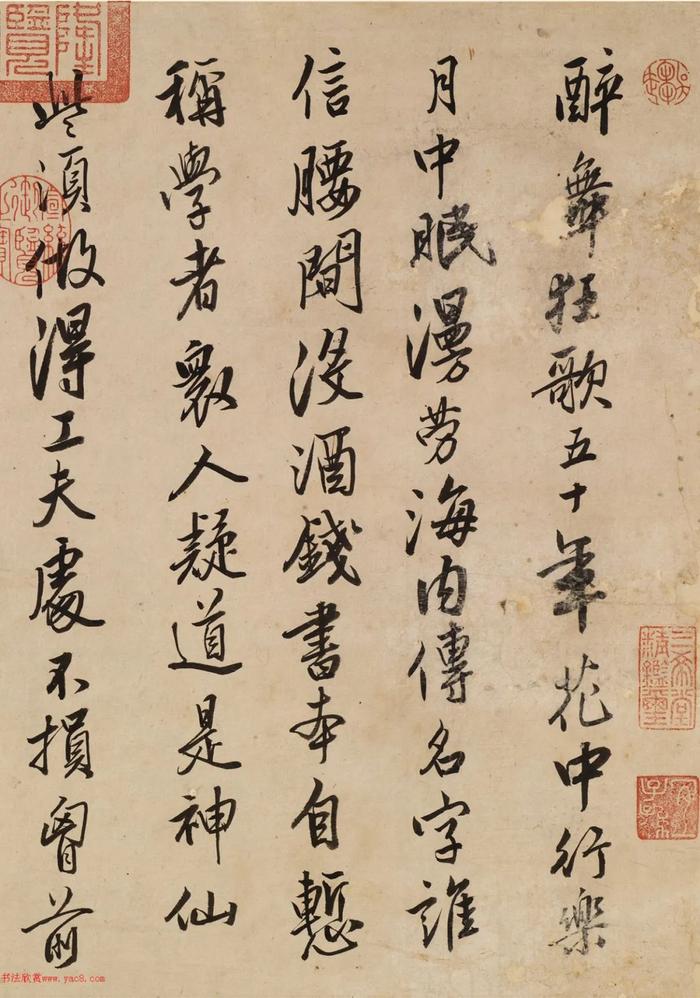 醉舞狂歌五十年花中行樂
月中眠漫勞海内傳名字誰
信腰間没酒錢書本自慙
稱學者衆人疑道是神仙
些須做得工夫處不損胷前
三希堂精鑑璽
宜子孫
书法欣赏www.yac8.com